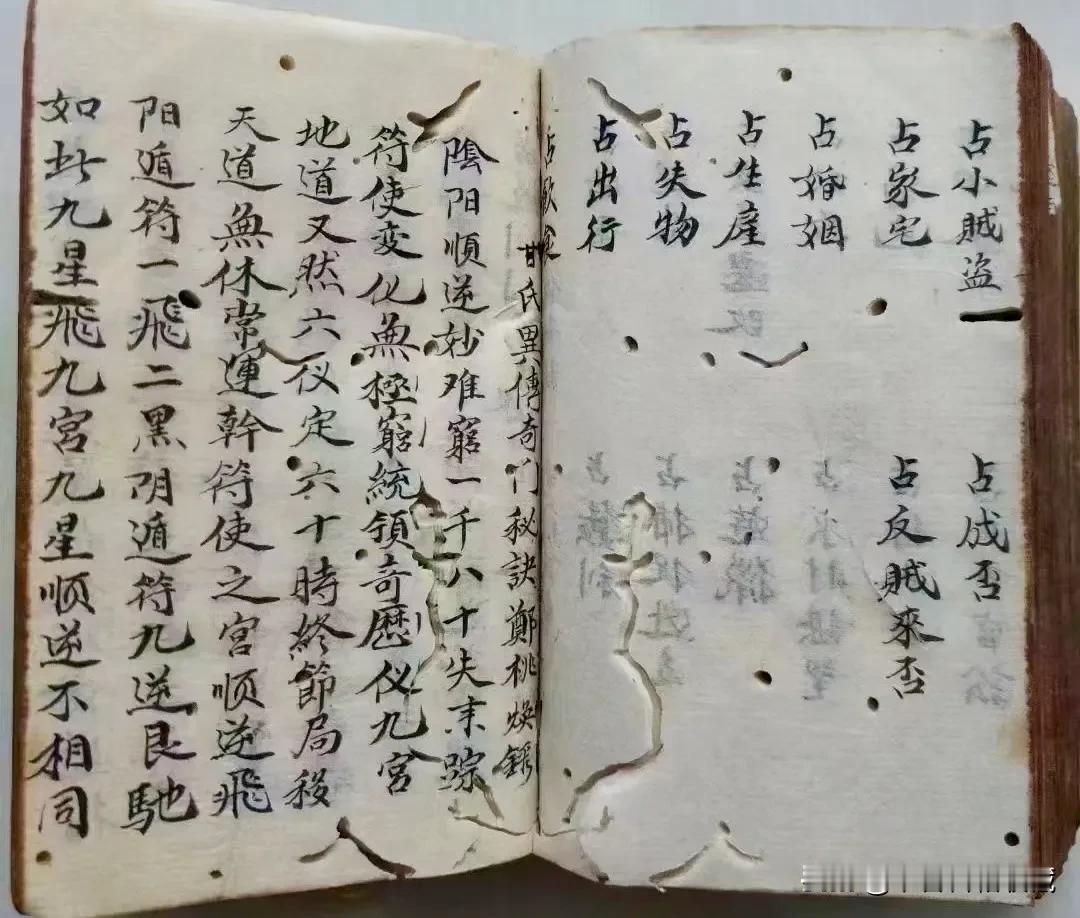 占小賊盗
占成否
占家宅
占反賊來否
占婚姻
占生産
占失物
占出行
甘氏異傳奇门秘訣鄭桃焕
陰阳順逆妙难窮一千八十失末踪
符使变化無極窮統領奇曆仪九宫
地道又然六仪定六十時終節局移
天道無休常運幹符使之宫顺逆飛
阳遁符一飛二黑阴遁符九逆艮馳
如此九星飛九宫九星顺逆不相同